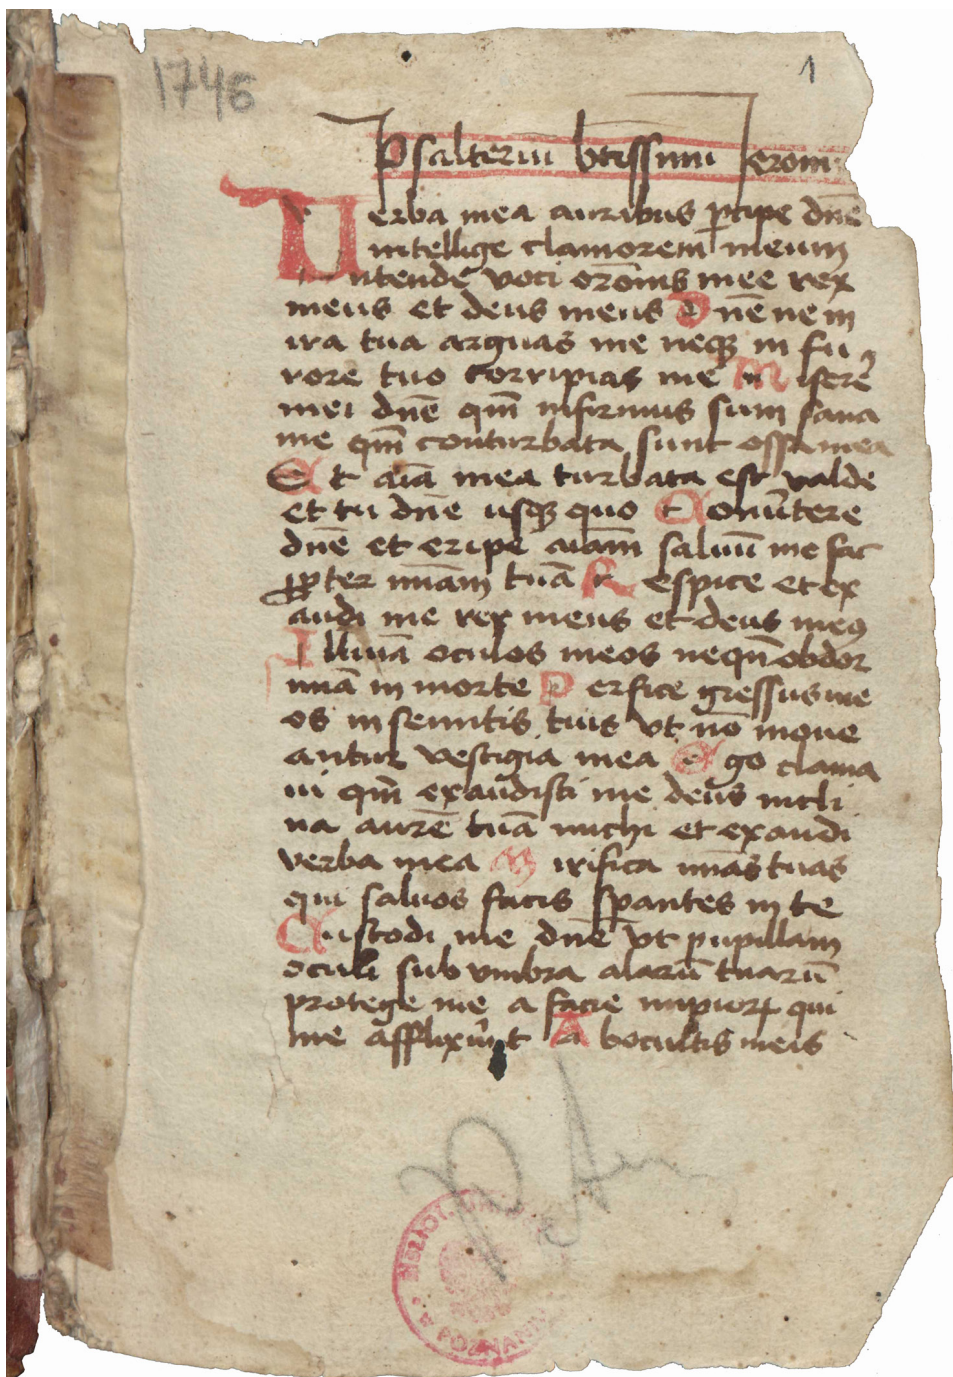 1746
1
Psalteriu btissimi Jeroni
Uerba mea auribus ꝑcipe dn̄e
intellige clamorem meum
Intende voci or̄onis mee rex
meus et deus meus Dn̄e ne in
ira tua arguas me neqꝫ in fu
rore tuo corripias me Miserē
mei dn̄e qm̄ infirmus sum sana
me qm̄ conturbata sunt ossa mea
Et aīa mea turbata est valde
et tu dn̄e usqꝫ quo Conũtere
dn̄e et eripe aīam saluū me fac
ꝓpter mīam tuā Respice et ex
audi me rex meus et deus meꝰ
Illuīa oculos meos neqn̄ obdor
miā in morte Perfice gressus me
os in semitis tuis vt nō moue
antur vestigia mea Ego clama
ui qm̄ exaudisti me deus incli
na aurē tuā michi et exaudi
verba mea Mirifica mīas tuas
qui saluos facis sꝑantes in te
Custodi me dn̄e vt pupillam
oculi sub vmbra alarū tuarū
protege me a facie impioꝝ qui
me afflixer̄t Ab ocultis meis
BIBLIOT. UNIW.
W POZNANIU